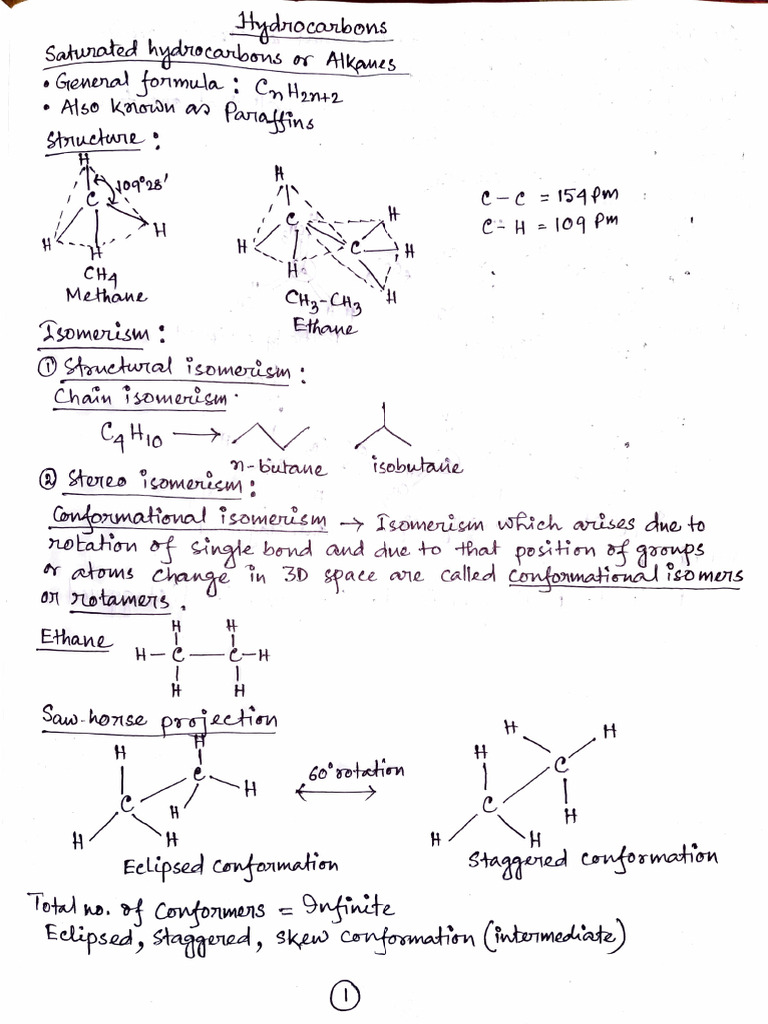 Hydrocarbons
Saturated hydrocarbons or Alkanes
• General formula : CnH2n+2
• Also known as Paraffins
Structure :
H
109°28'
C
H H H
CH4
Methane
H
C H
H C H
H
CH3-CH3 H
Ethane
C-C = 154 pm
C-H = 109 pm
Isomerism :
① Structural isomerism :
Chain isomerism.
C4H10 →
n-butane isobutane
② Stereo isomerism :
Conformational isomerism → Isomerism which arises due to
rotation of single bond and due to that position of groups
or atoms change in 3D space are called conformational isomers
or rotamers.
Ethane
H H
H-C-C-H
H H
Saw-horse projection
H H
C H
C H
H H
60° rotation
H H
H C
C H
H H
Eclipsed conformation
Staggered conformation
Total no. of conformers = Infinite
Eclipsed, staggered, skew conformation (intermediate)
①